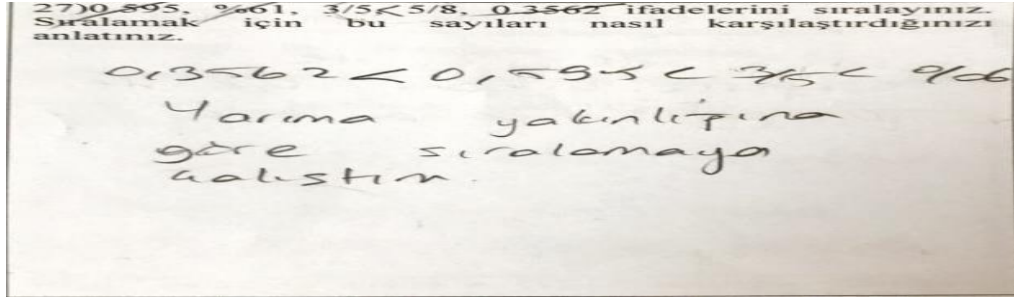 27)0.595, %61, 3/5<5/8, 0.3562 ifadelerini sıralayınız.
Sıralamak için bu sayıları nasıl karşılaştırdığınızı
anlatınız.
0,3562 < 0,595 < 3/5 <
Yarıma yakınlığına
göre sıralamaya
çalıştım.